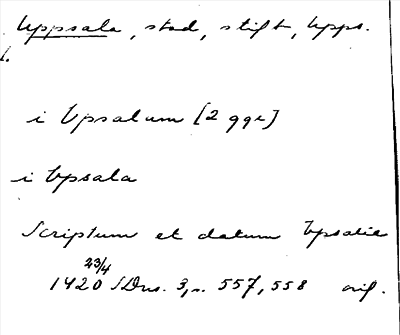 Uppsala, stad, stift, Upps.
i Upsalum [2 ggr]
i Upsala
Scriptum et datum Upsalie
23/4
1420 SDns. 3, s. 557, 558 orig.